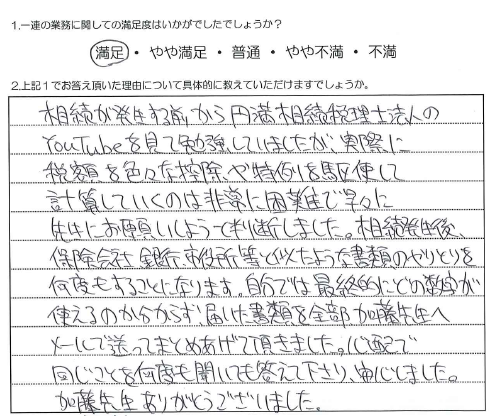 1.一連の業務に関しての満足度はいかがでしたでしょうか？
満足・やや満足・普通・やや不満・不満
2.上記1でお答え頂いた理由について具体的に教えていただけますでしょうか。
相続が発生する前から円満相続税理士法人の
YouTubeを見て勉強していましたが、実際に
税額を色々な控除や特例を駆使して
計算していくのは非常に困難で早々に
先生にお願いしようと判断しました。相続発生後、
保険会社 銀行 市役所等と似たような書類のやりとりを
何度もすることになります。自分では最終的にどの数字が
使えるのか分からず、届いた書類を全部加藤先生へ
メールで送ってまとめあげて頂きました。心配で
同じことを何度も聞いても答えて下さり、安心しました。
加藤先生ありがとうございました。